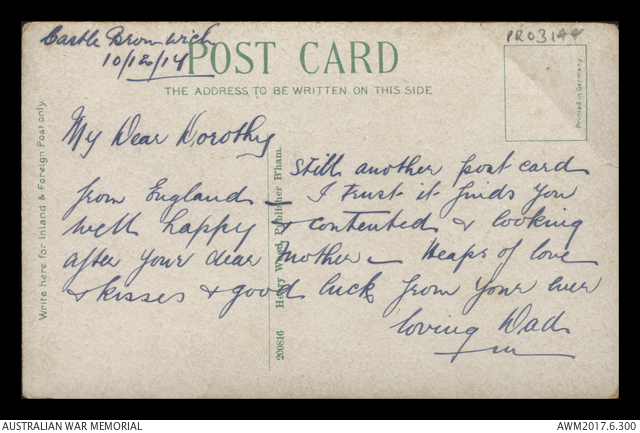 Castle Bromwich
10/12/17
PRO3144
POST CARD
THE ADDRESS TO BE WRITTEN ON THIS SIDE
Printed in Germany
Write here for Inland & Foreign Post only.
200816 Harry Wood, Publisher B'ham.
My Dear Dorothy
Still another post card
from England – I trust it finds you
well happy & contented & looking
after your dear Mother – Heaps of love
& kisses & good luck from your ever
loving Dad
AUSTRALIAN WAR MEMORIAL
AWM2017.6.300